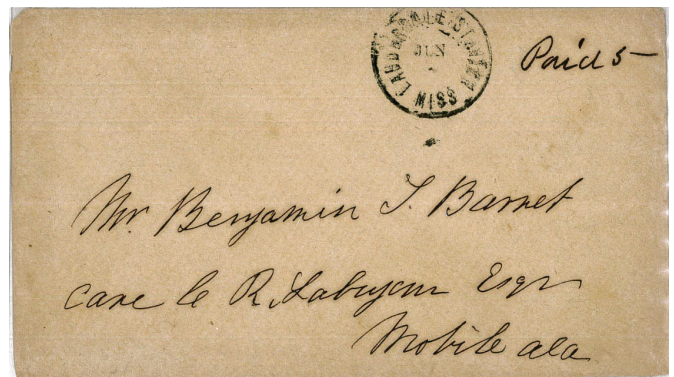 LAUDERDALE STATION MISS
JUN
Paid 5
Mr. Benjamin T. Barnet
care C R. Labuzan Esqr
Mobile ala